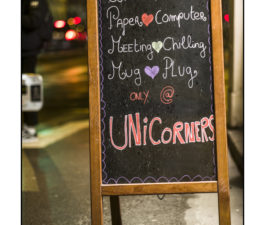 Paper ❤ Computer
Meeting ❤ Chilling
Mug ❤ Plug
ONLY @
UNiCORNERS